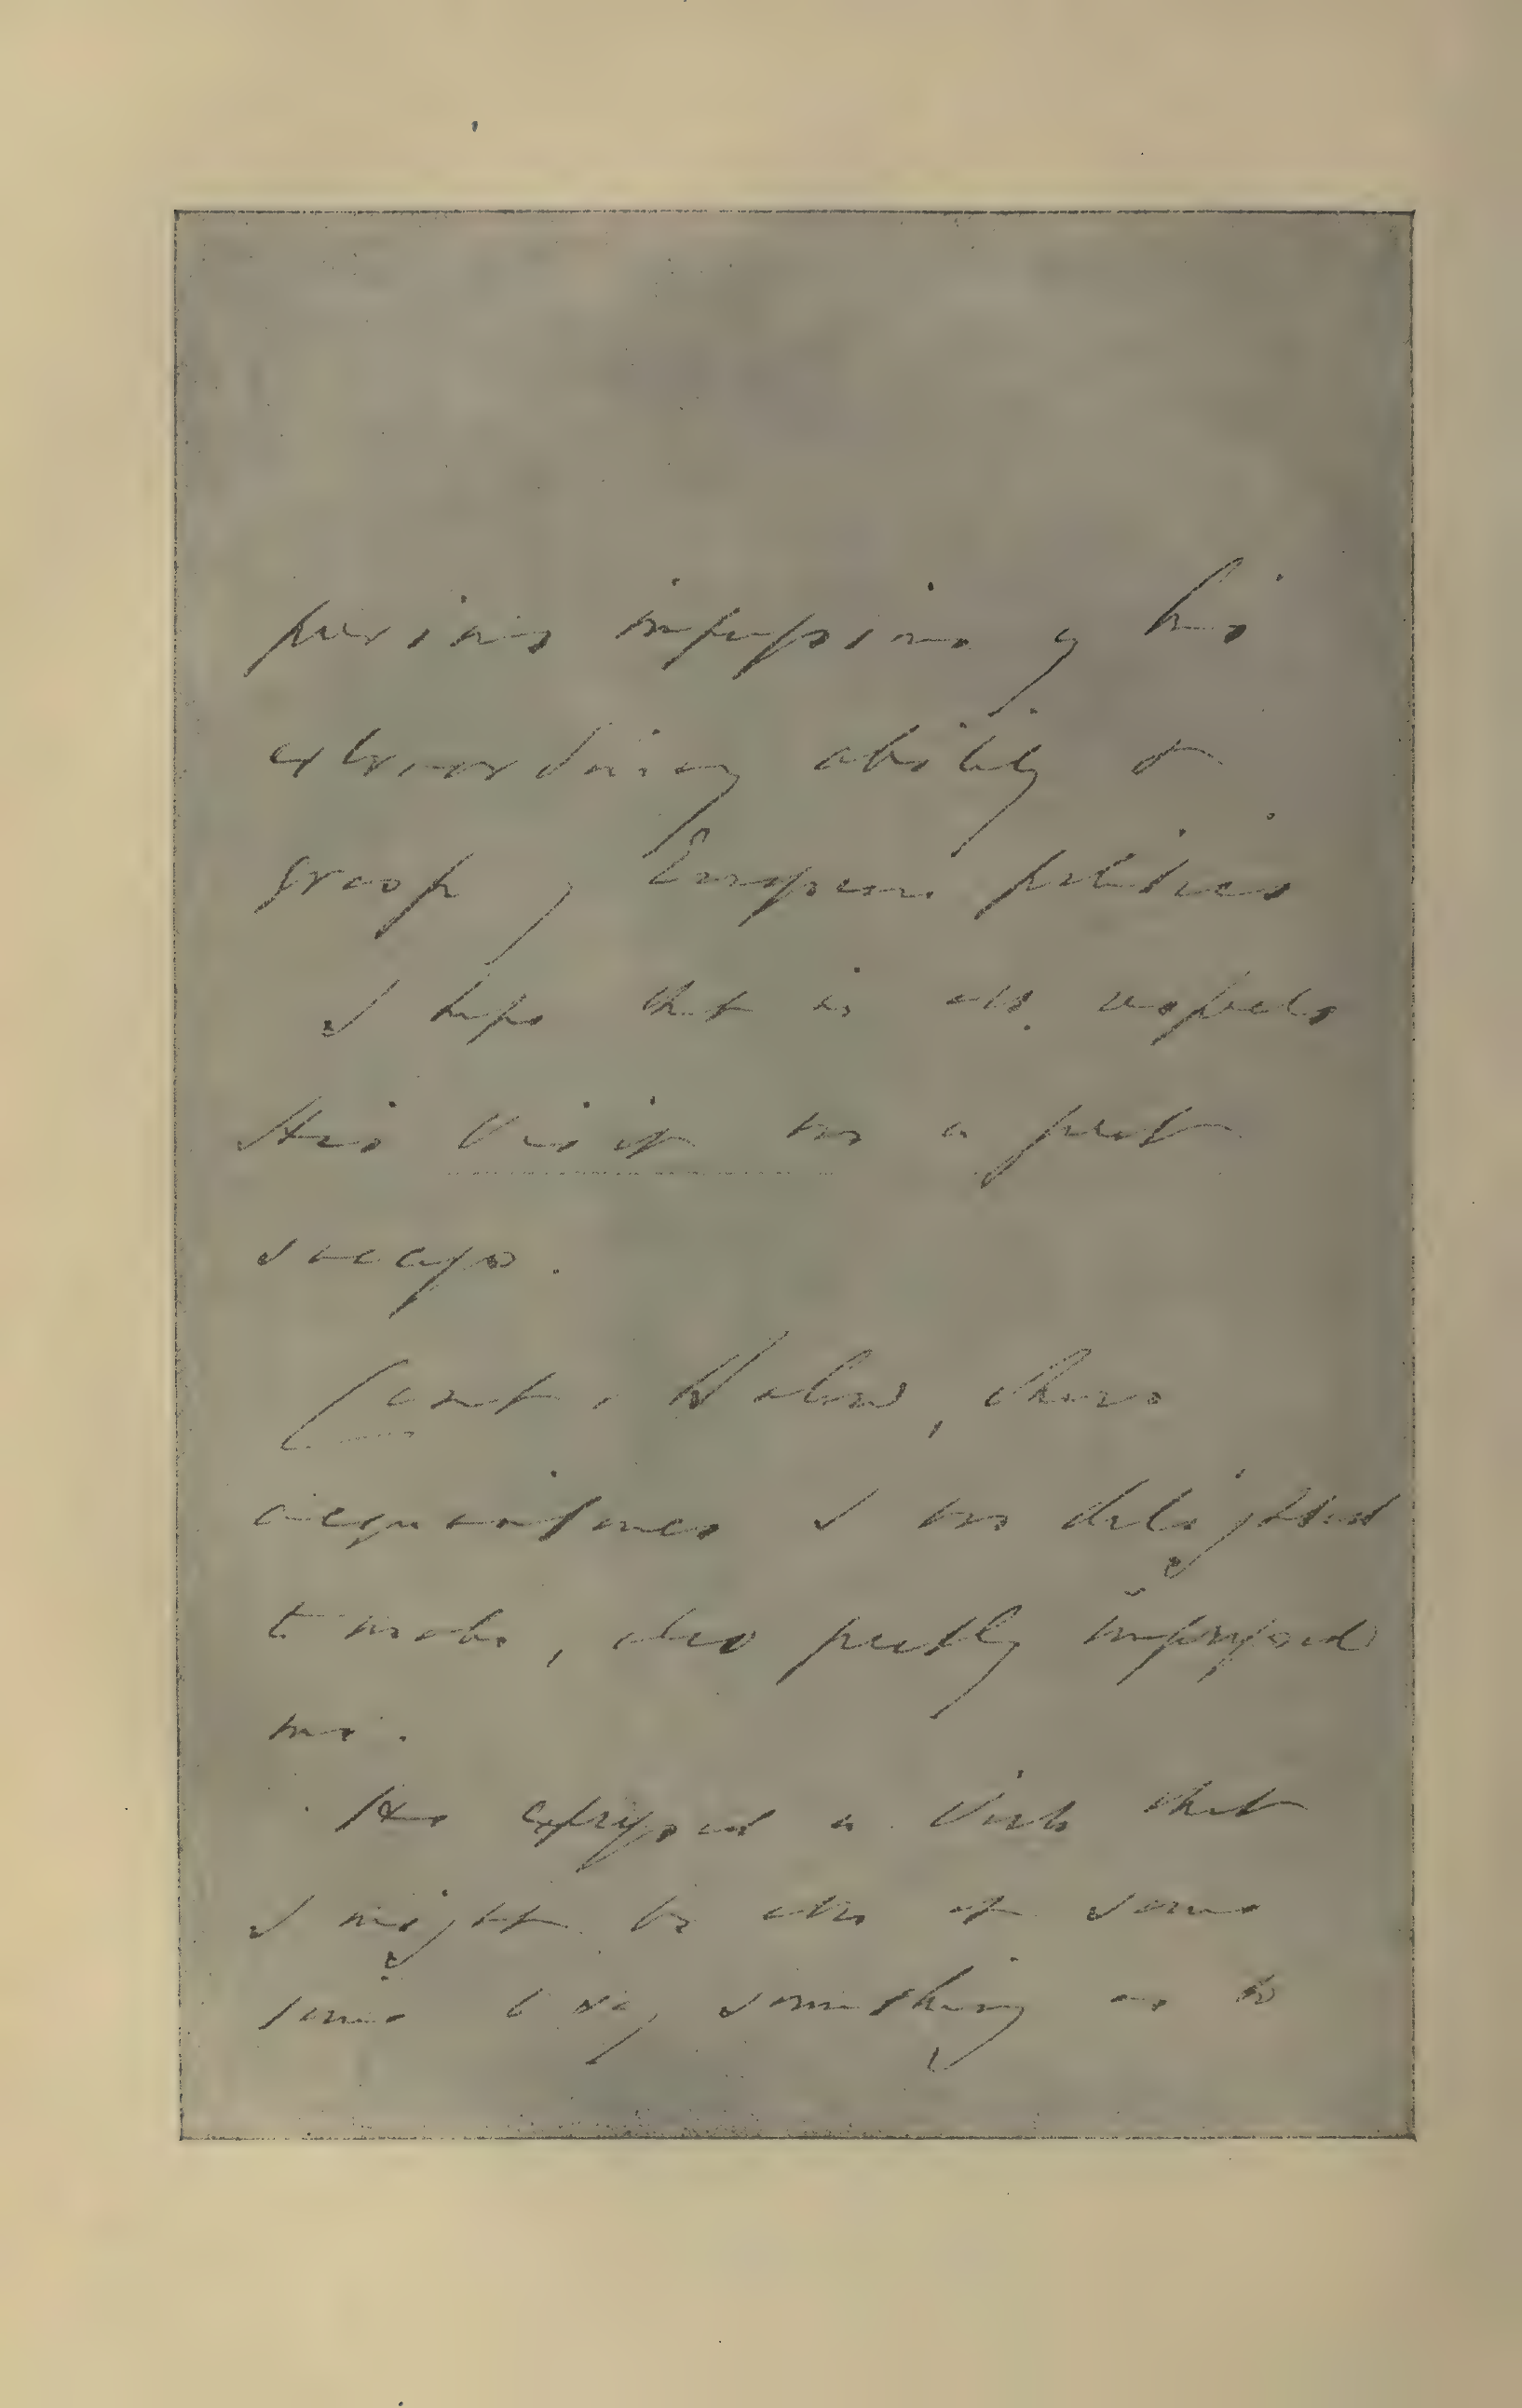 previous impressions of his
extraordinary ability &
grasp of European politics
I hope that in all respects
His Visit was a great
success.
Count Hatzfeldt, whose
acquaintance I was delighted
to make, also greatly impressed
me.
He expressed a wish that
I might be able at some
time to say something as to